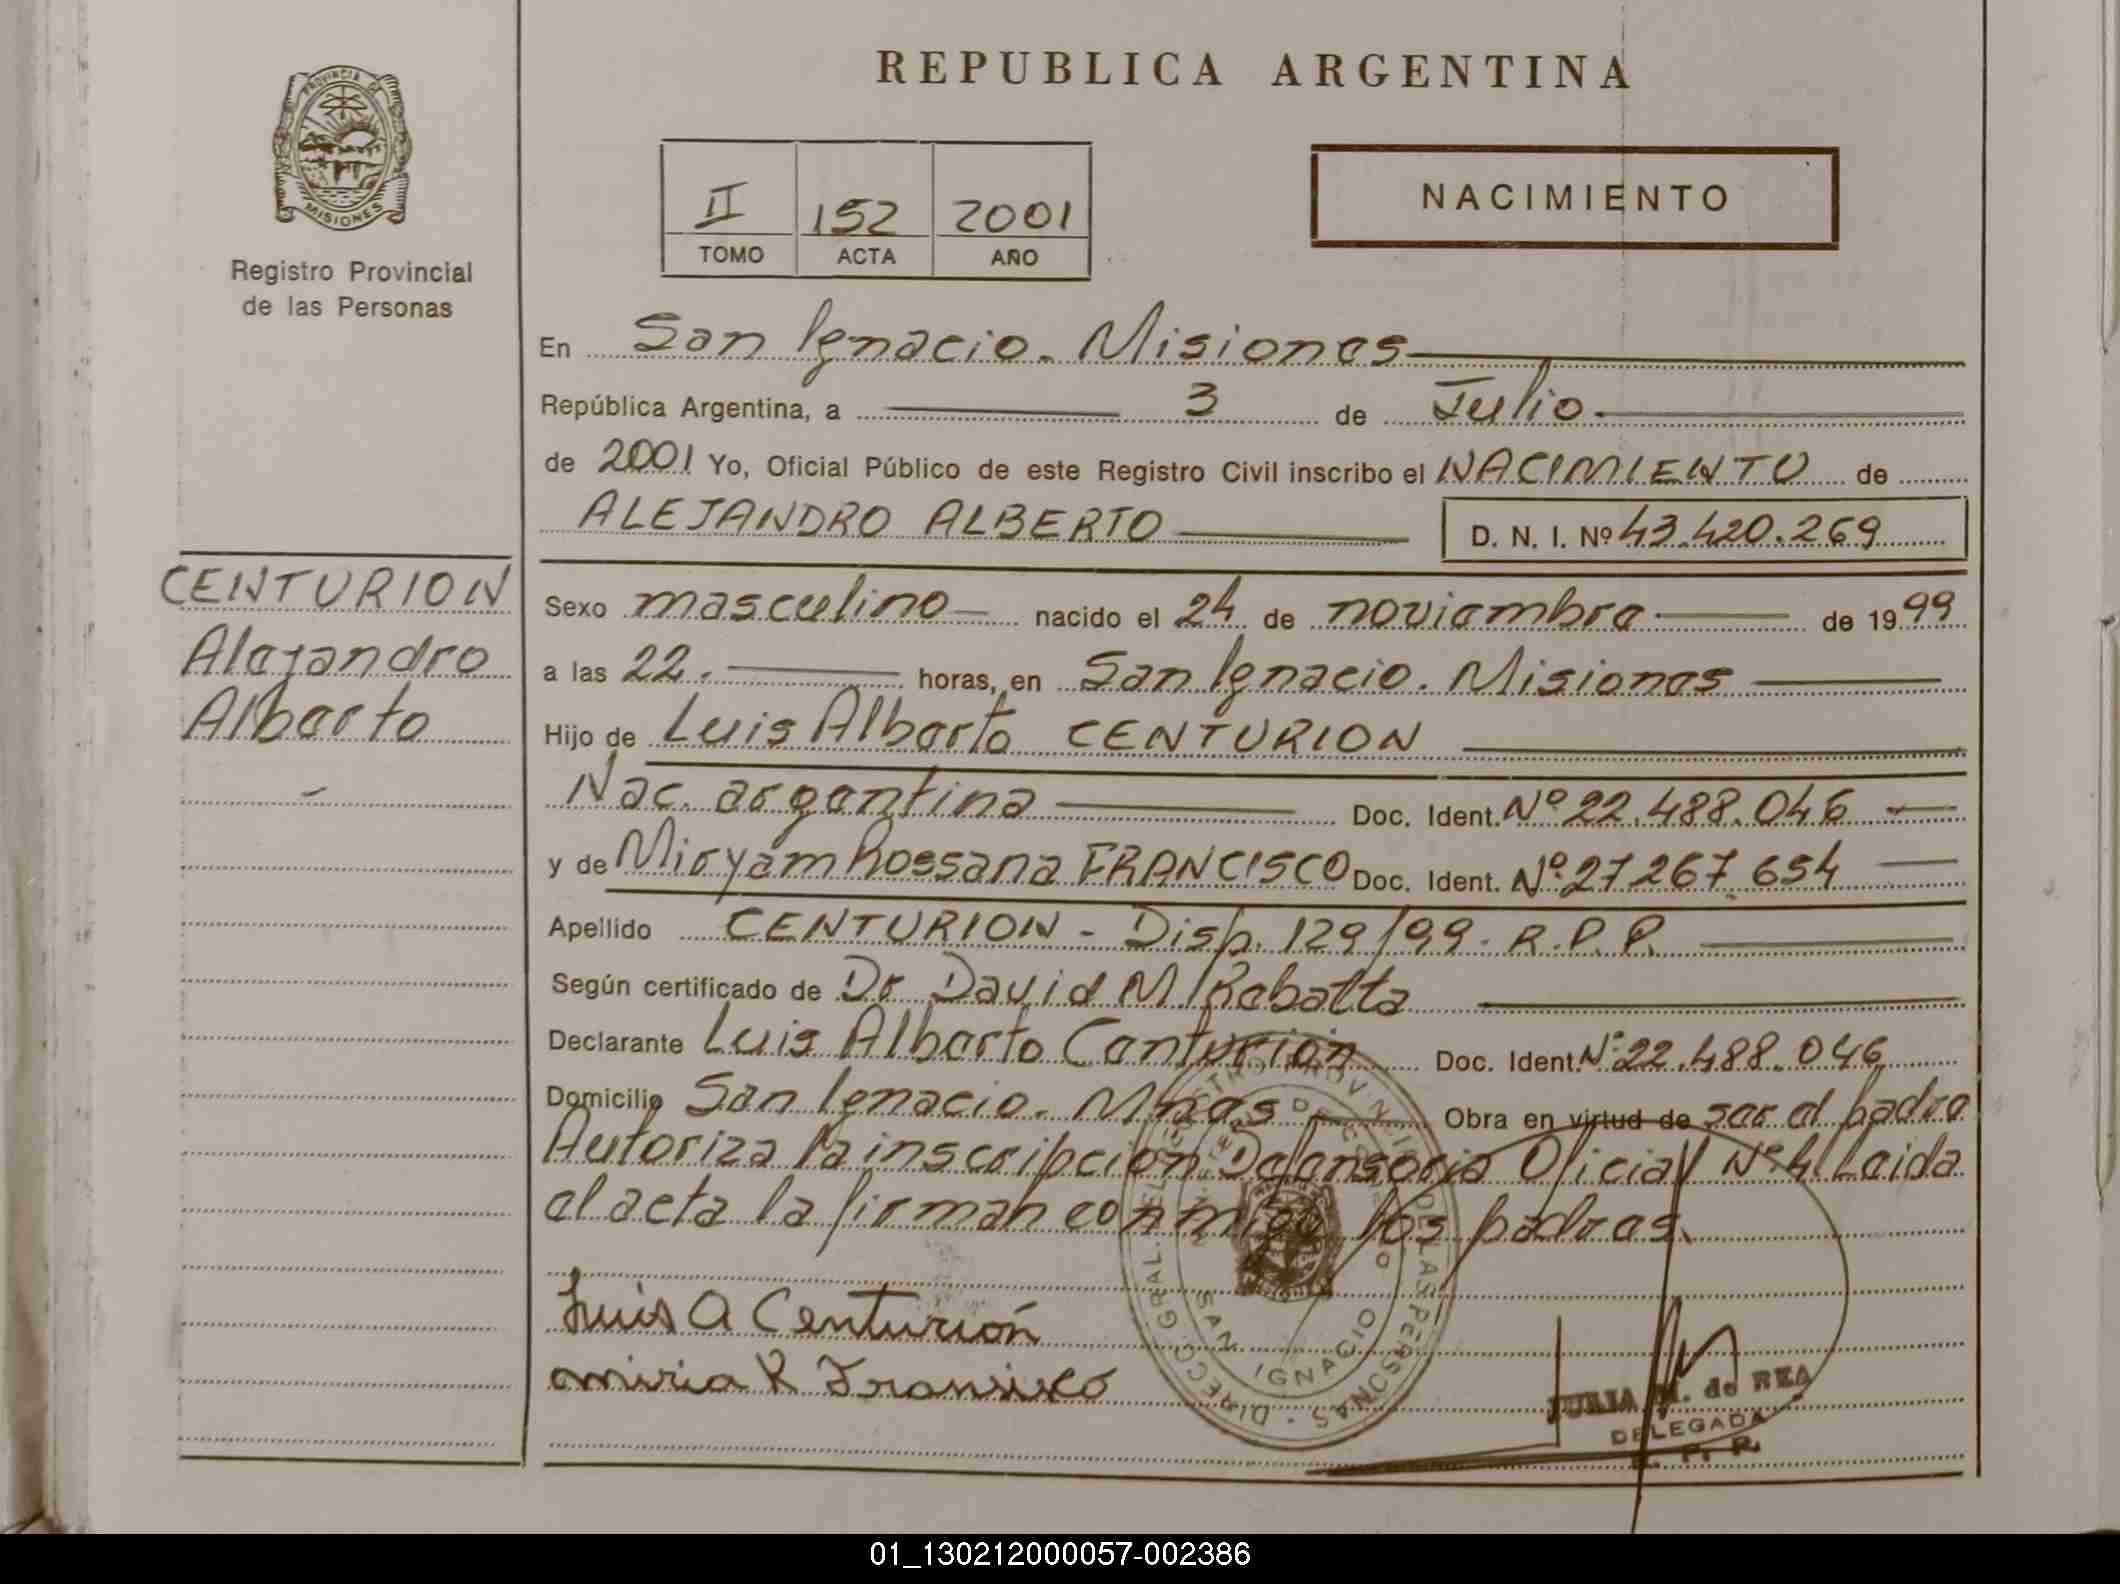 REPUBLICA ARGENTINA
PROVINCIA DE
MISIONES
Registro Provincial
de las Personas
II 152 2001
TOMO ACTA AÑO
NACIMIENTO
En San Ignacio. Misiones
República Argentina, a 3 de Julio.
de 2001 Yo, Oficial Público de este Registro Civil inscribo el NACIMIENTO de
ALEJANDRO ALBERTO D. N. I. Nº 43.420.269
CENTURION
Alejandro
Alberto
Sexo masculino nacido el 24 de noviembre de 1999
a las 22. horas, en San Ignacio. Misiones
Hijo de Luis Alberto CENTURION
Nac. argentina Doc. Ident. Nº 22.488.046
y de Miryam Rossana FRANCISCO Doc. Ident. Nº 27267.654
Apellido CENTURION - Disp. 129/99. R.P.P.
Según certificado de Dr David M Rebatta
Declarante Luis Alberto Centurión Doc. Ident. Nº 22.488.046
Domicilio San Ignacio. Mnes Obra en virtud de ser el padre
Autoriza la inscripción Defensoria Oficial Nº 4. Leida
el acta la firman conmigo los padres.
Luis A Centurión
miria R Fransisco
DIRECC. GRAL. DEL REGISTRO PROVINCIAL DE LAS PERSONAS
SAN IGNACIO
JULIA M. de REA
DELEGADA
R. P. P.
01_130212000057-002386